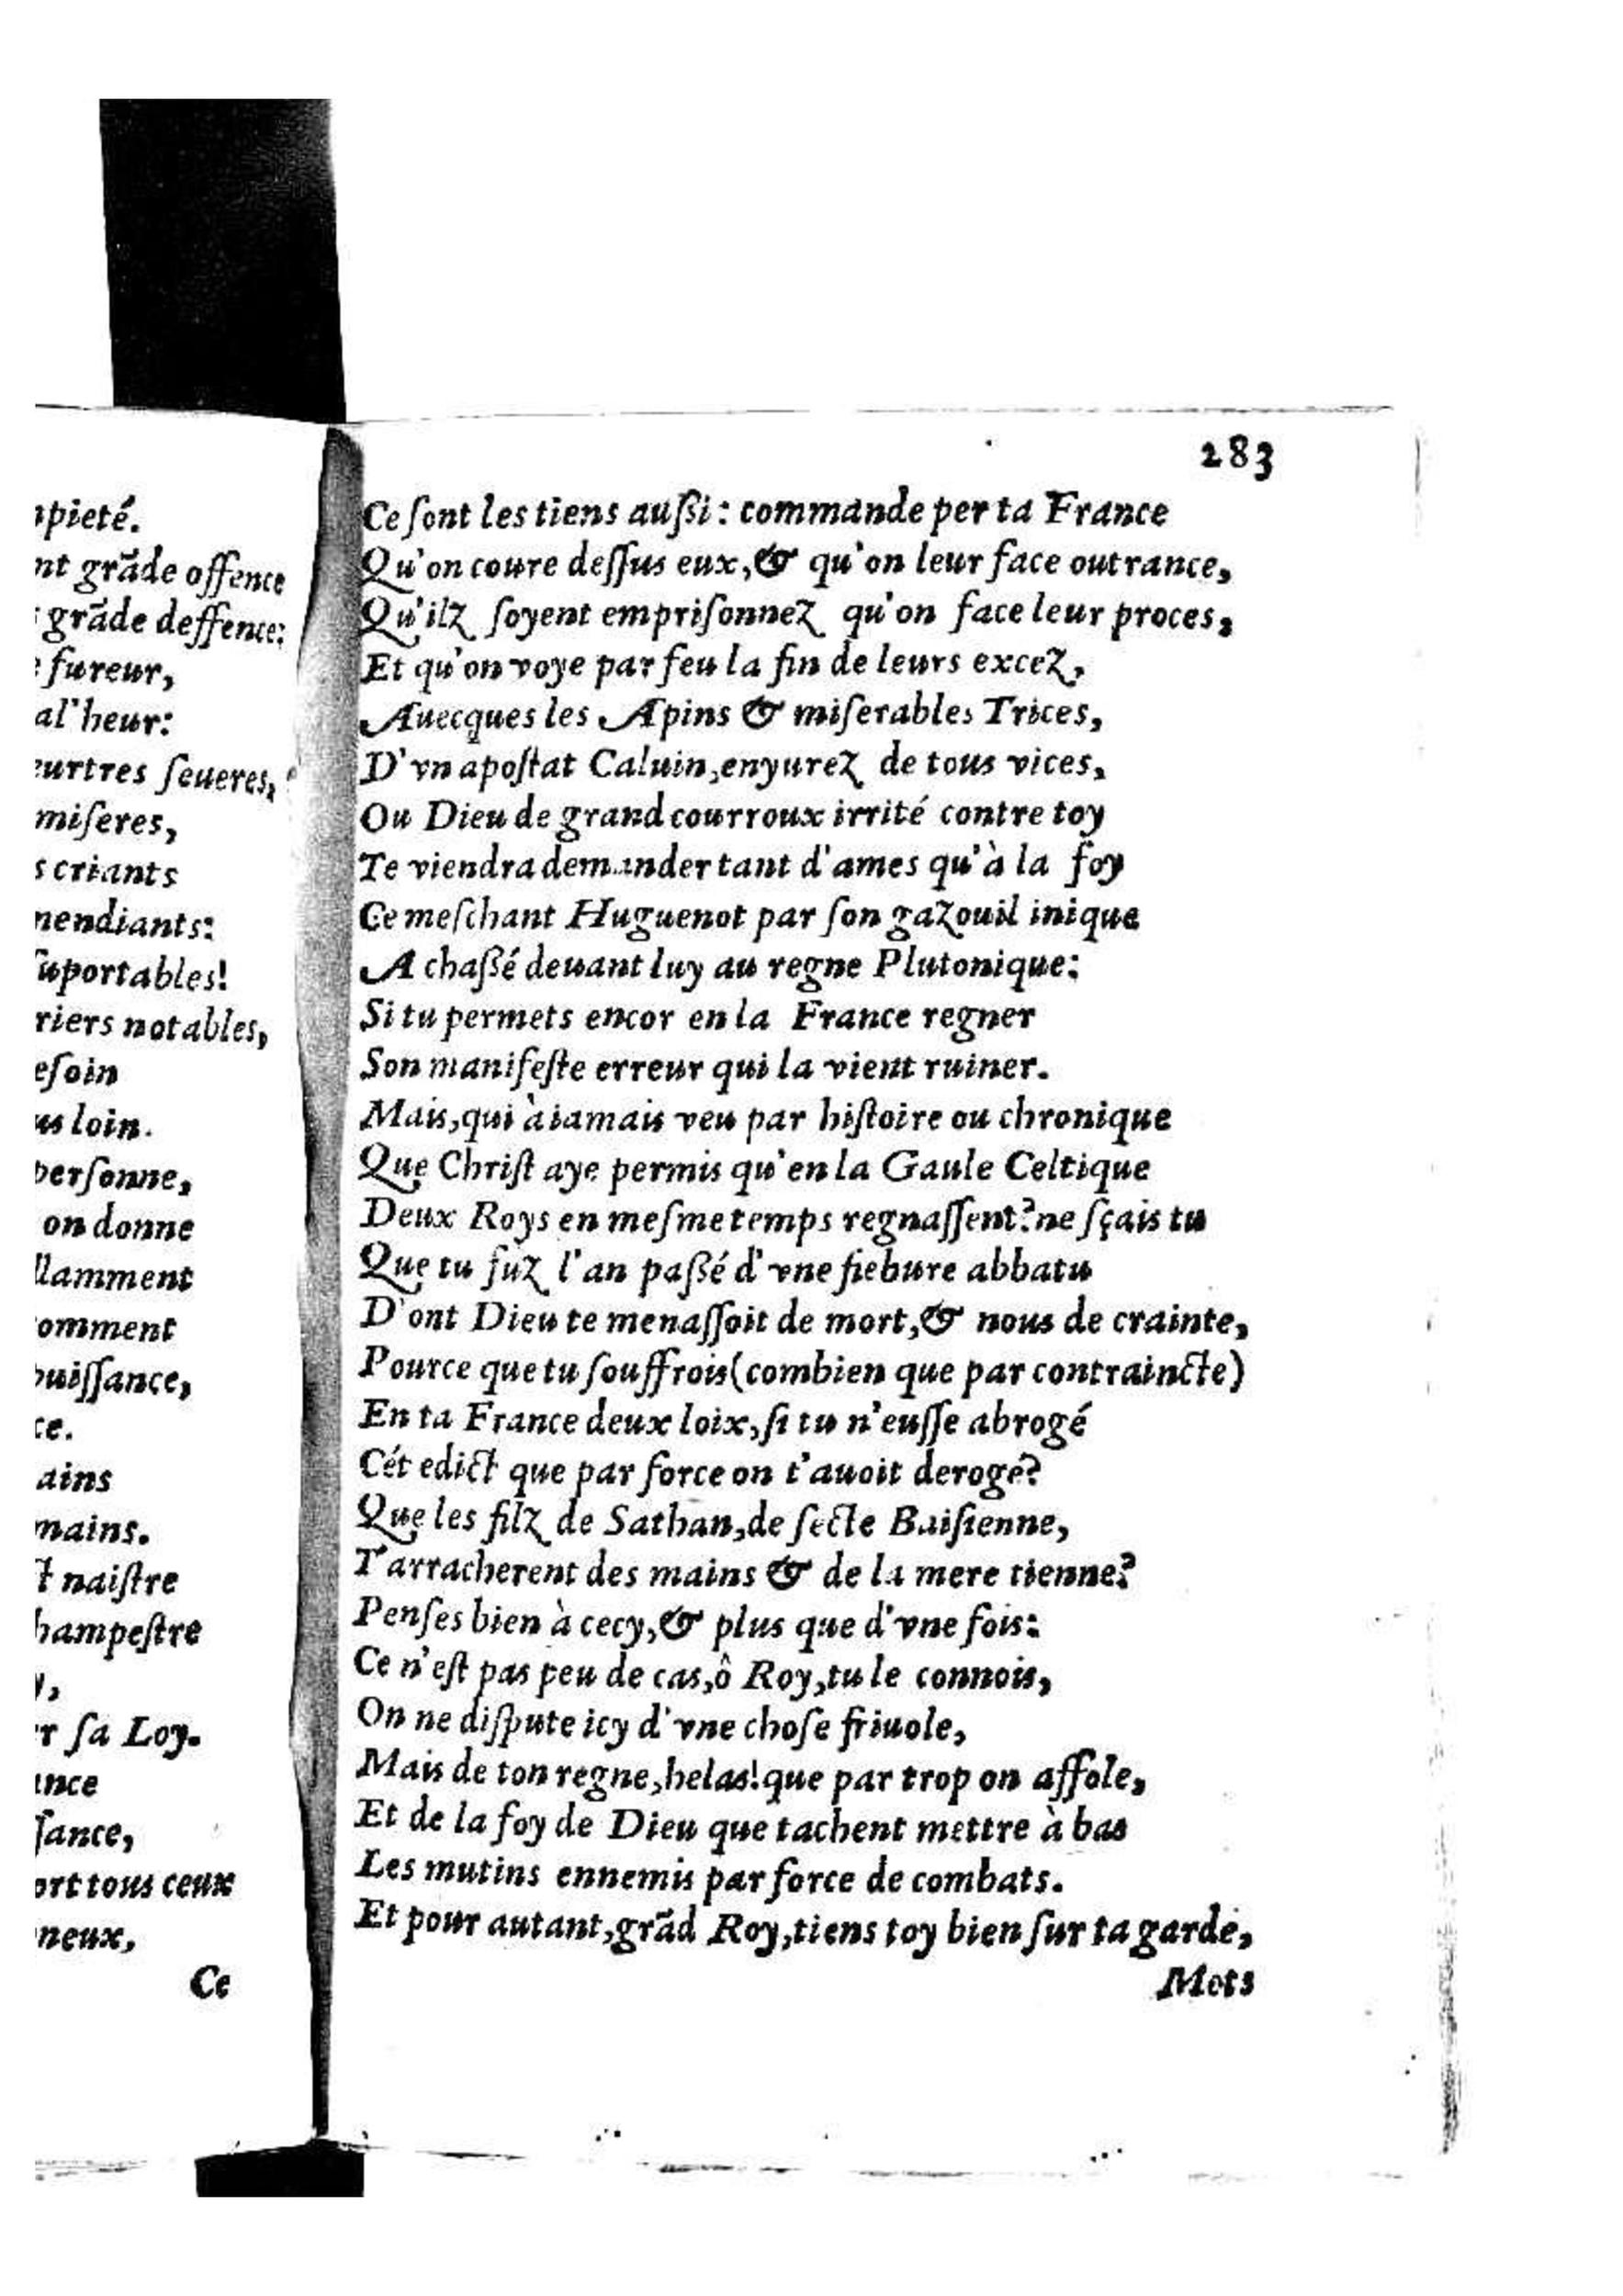 283
Ce ſont les tiens auſsi: commande per ta France
Qu'on coure deſſus eux, & qu'on leur face outrance,
Qu'ilz ſoyent empriſonnez qu'on face leur proces,
Et qu'on voye par feu la fin de leurs excez,
Auecques les Apins & miſerables Trices,
D'vn apoſtat Caluin, enyurez de tous vices,
Ou Dieu de grand courroux irrité contre toy
Te viendra demander tant d'ames qu'à la foy
Ce meſchant Huguenot par ſon gazouil inique
A chaßé deuant luy au regne Plutonique:
Si tu permets encor en la France regner
Son manifeſte erreur qui la vient ruiner.
Mais, qui à iamais veu par hiſtoire ou chronique
Que Chriſt aye permis qu'en la Gaule Celtique
Deux Roys en meſme temps regnaſſent? ne ſçais tu
Que tu fuz l'an paßé d'vne fiebure abbatu
D'ont Dieu te menaſſoit de mort, & nous de crainte,
Pource que tu ſouffrois (combien que par contraincte)
En ta France deux loix, ſi tu n'euſſe abrogé
Cét edict que par force on t'auoit derogé?
Que les filz de Sathan, de ſecte Baiſienne,
T'arracherent des mains & de la mere tienne?
Penſes bien à cecy, & plus que d'vne fois:
Ce n'eſt pas peu de cas, ô Roy, tu le connois,
On ne diſpute icy d'vne choſe friuole,
Mais de ton regne, helas! que par trop on affole,
Et de la foy de Dieu que tachent mettre à bas
Les mutins ennemis par force de combats.
Et pour autant, grãd Roy, tiens toy bien ſur ta garde,
Mets